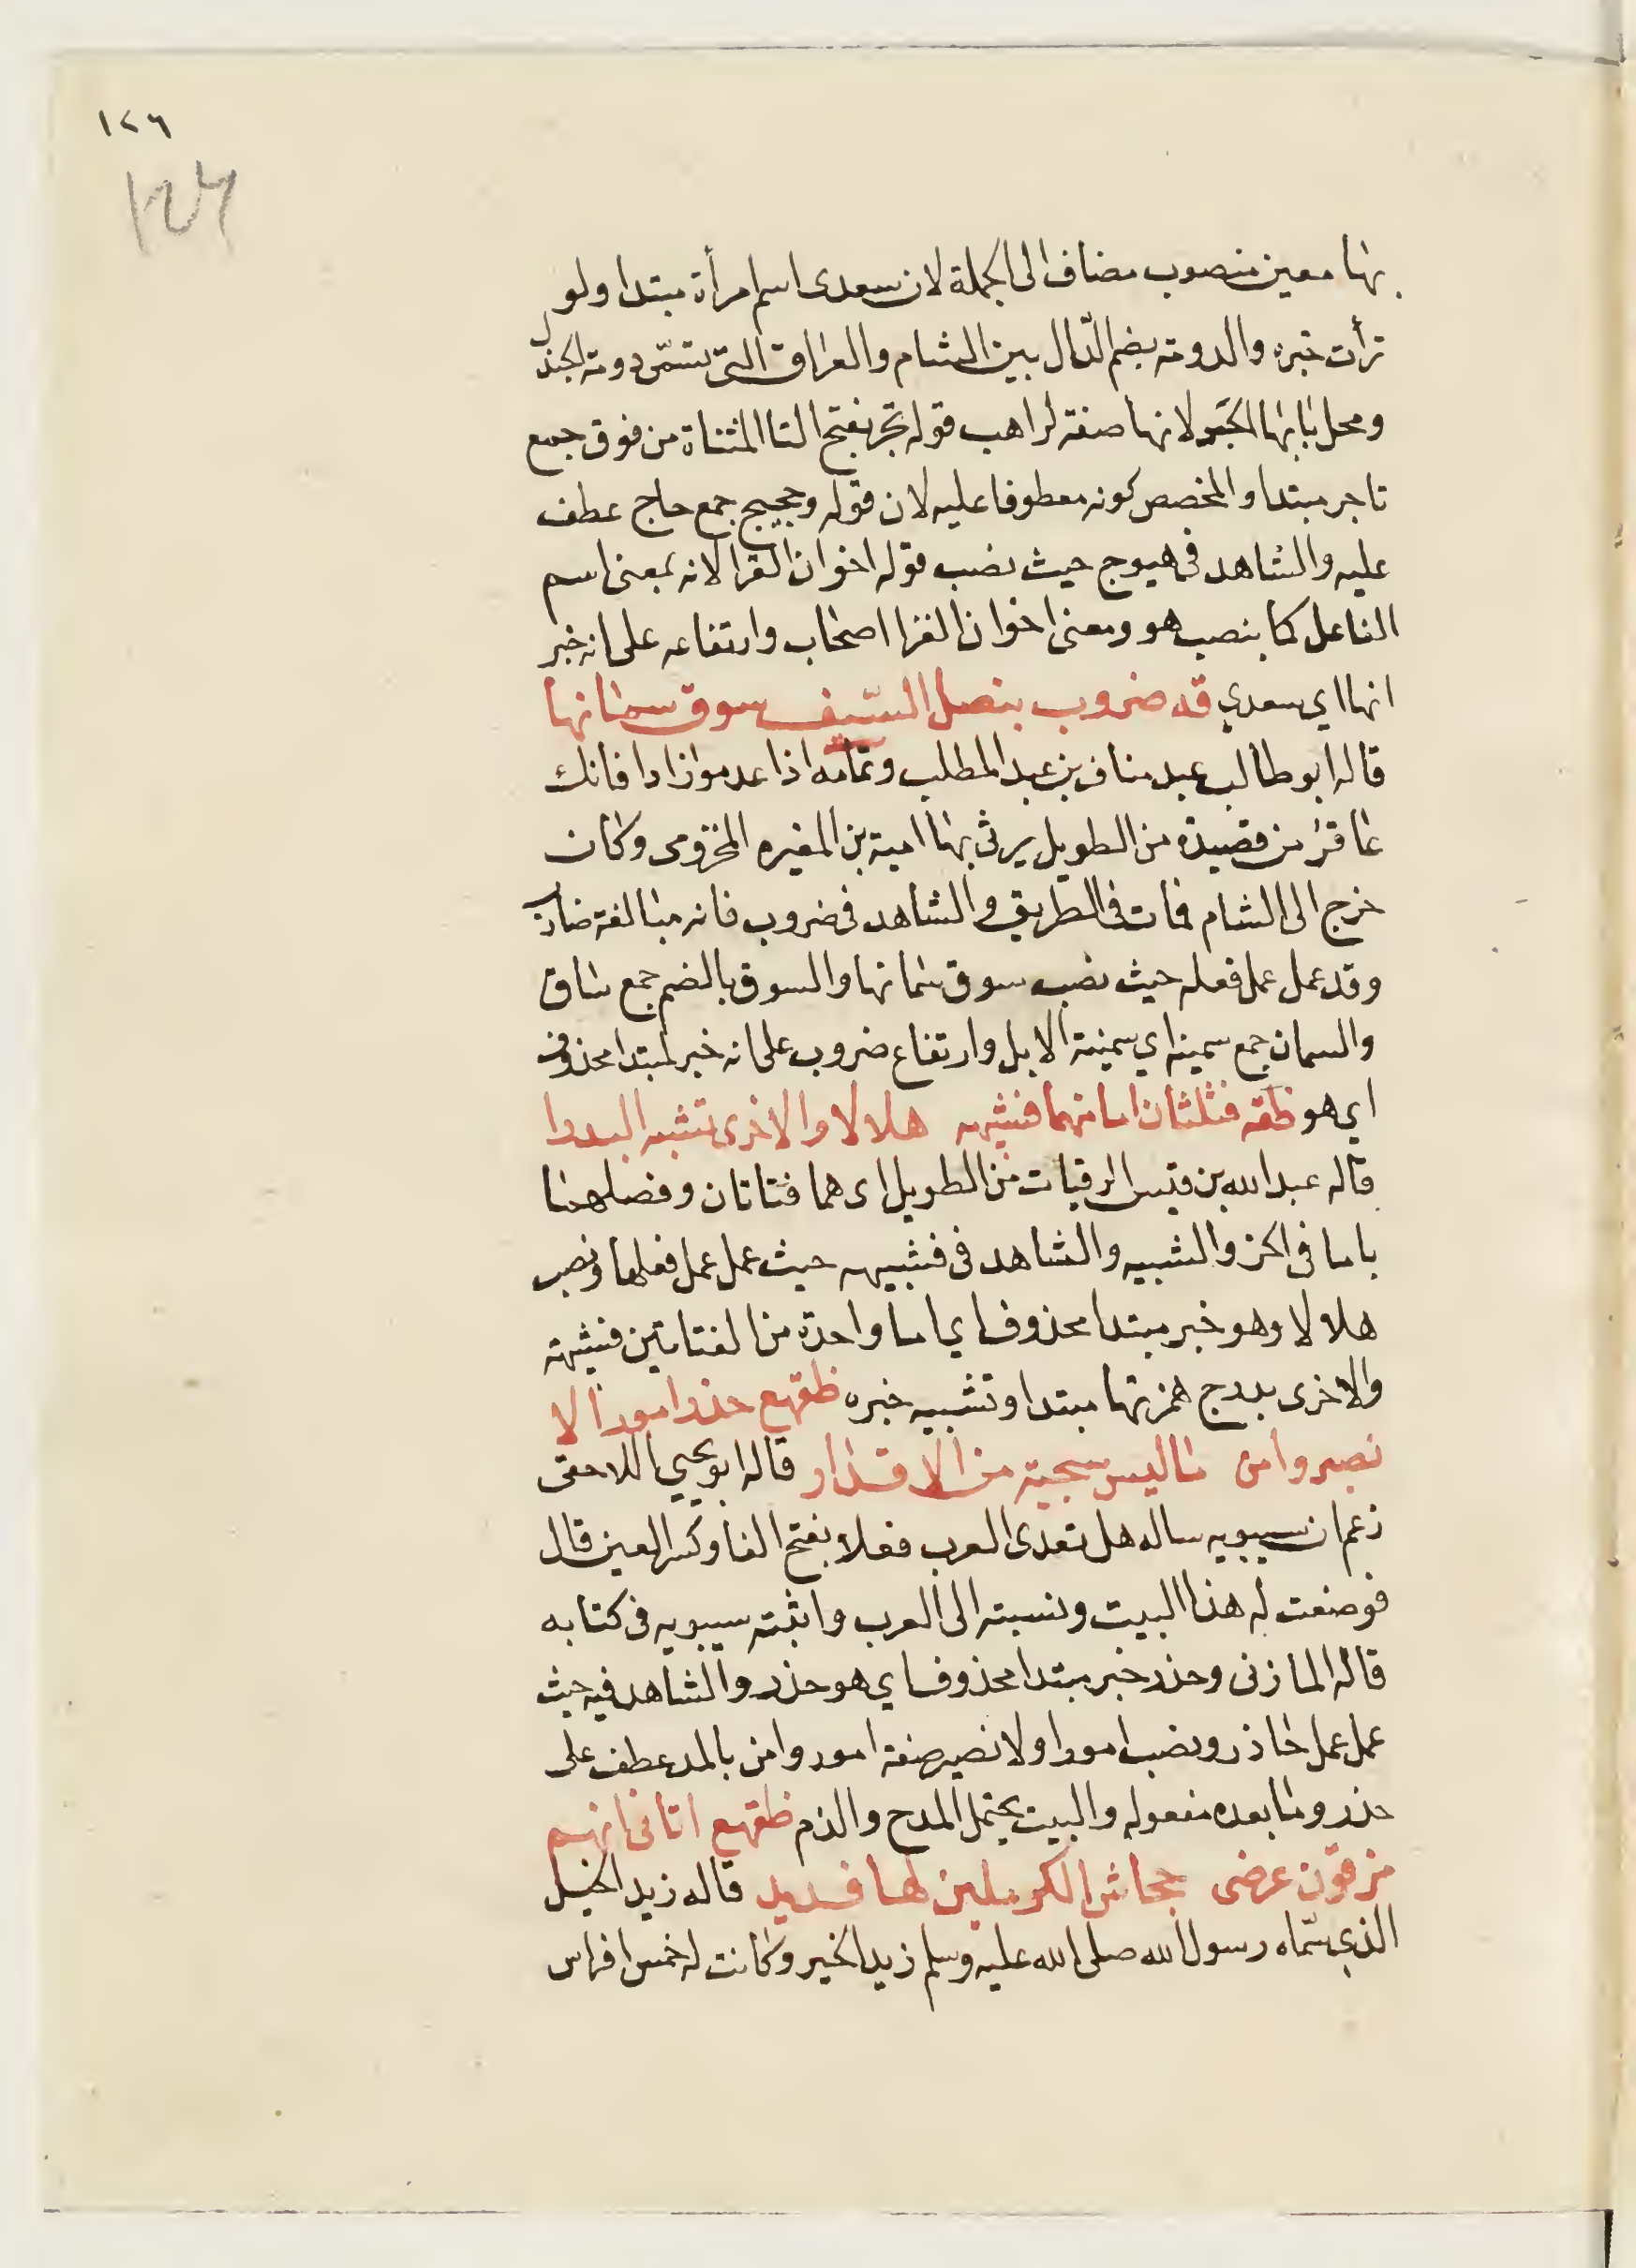 ١٢٦
١٢٦
بها معين منصوب مضاف الى الجملة لان سعدى اسم امرأة مبتدا ولو
ترأت خبره والدومة بضم الدّال بين الشام والعراق التى تسمّى دومة الجندل
ومحل بابها الجَر لانها صفة لراهب قوله تجر بفتح التا المثناة من فوق جمع
تاجر مبتدا والمخصص كونه معطوفا عليه لان قوله وحجيج جمع حاج عطف
عليه والشاهد فى هيوج حيث نصب قوله اخوان القرا لانه بمعنى اسم
الفاعل كما ينصب هو ومعنى اخوان الغزا اصحاب وارتفاعه على انه خبر
انها اي سعدي قه ضروب بنصل السّيف سوق سمانها
قاله ابو طالب عبد مناف بن عبد المطلب وتمامه اذا عدموا زادا فانك
عاقر من قصيدة من الطويل يرثى بها امية بن المغيره المخزومى وكان
خرج الى الشام فمات فى الطريق والشاهد فى ضروب فانه مبالغة ضارب
وقد عمل عمل فعله حيث نصب سوق سمانها والسوق بالضم جمع ساق
والسمان جمع سمينه اي سمينة الابل وارتفاع ضروب على انه خبر لمبتدا محذوف
اي هو ظقه فتاتان اما منهما فشبيهه هلالا والاخرى تشبه البدرا
قاله عبد الله بن قيس الرقيات من الطويل اى هما فتاتان وفصلهما
باما فى الحز والشبيه والشاهد فى فشبيهه حيث عمل عمل فعلها ونصب
هلالا وهو خبر مبتدا محذوف اي اما واحدة من الفتاتين فشبيهة
والاخرى بدرج همزتها مبتدا وتشبيه خبره ظقهع حذر امورا لا
تضير وآمن ما ليس سجية من الاقدار قاله ابو يحيي اللاحقى
زعم ان سيبويه ساله هل تعدى العرب فعلا بفتح الفا وكسر العين قال
فوضعت له هذا البيت ونسبته الى العرب واثبته سيبويه فى كتابه
قاله المازنى وحذر خبر مبتدا محذوف اي هو حذر والشاهد فيه حيث
عمل عمل حاذر ونصب امورا ولا تضير صفة امور وامن بالمد عطف على
حذر وما بعده مفعوله والبيت يحتمل المدح والذم ظقهع اتانى انهم
مزقون عرضى جحاش الكرملين لها فديد قاله زيد الخيل
الذي سمّاه رسول الله صلى الله عليه وسلم زيد الخير وكانت له خمس افراس